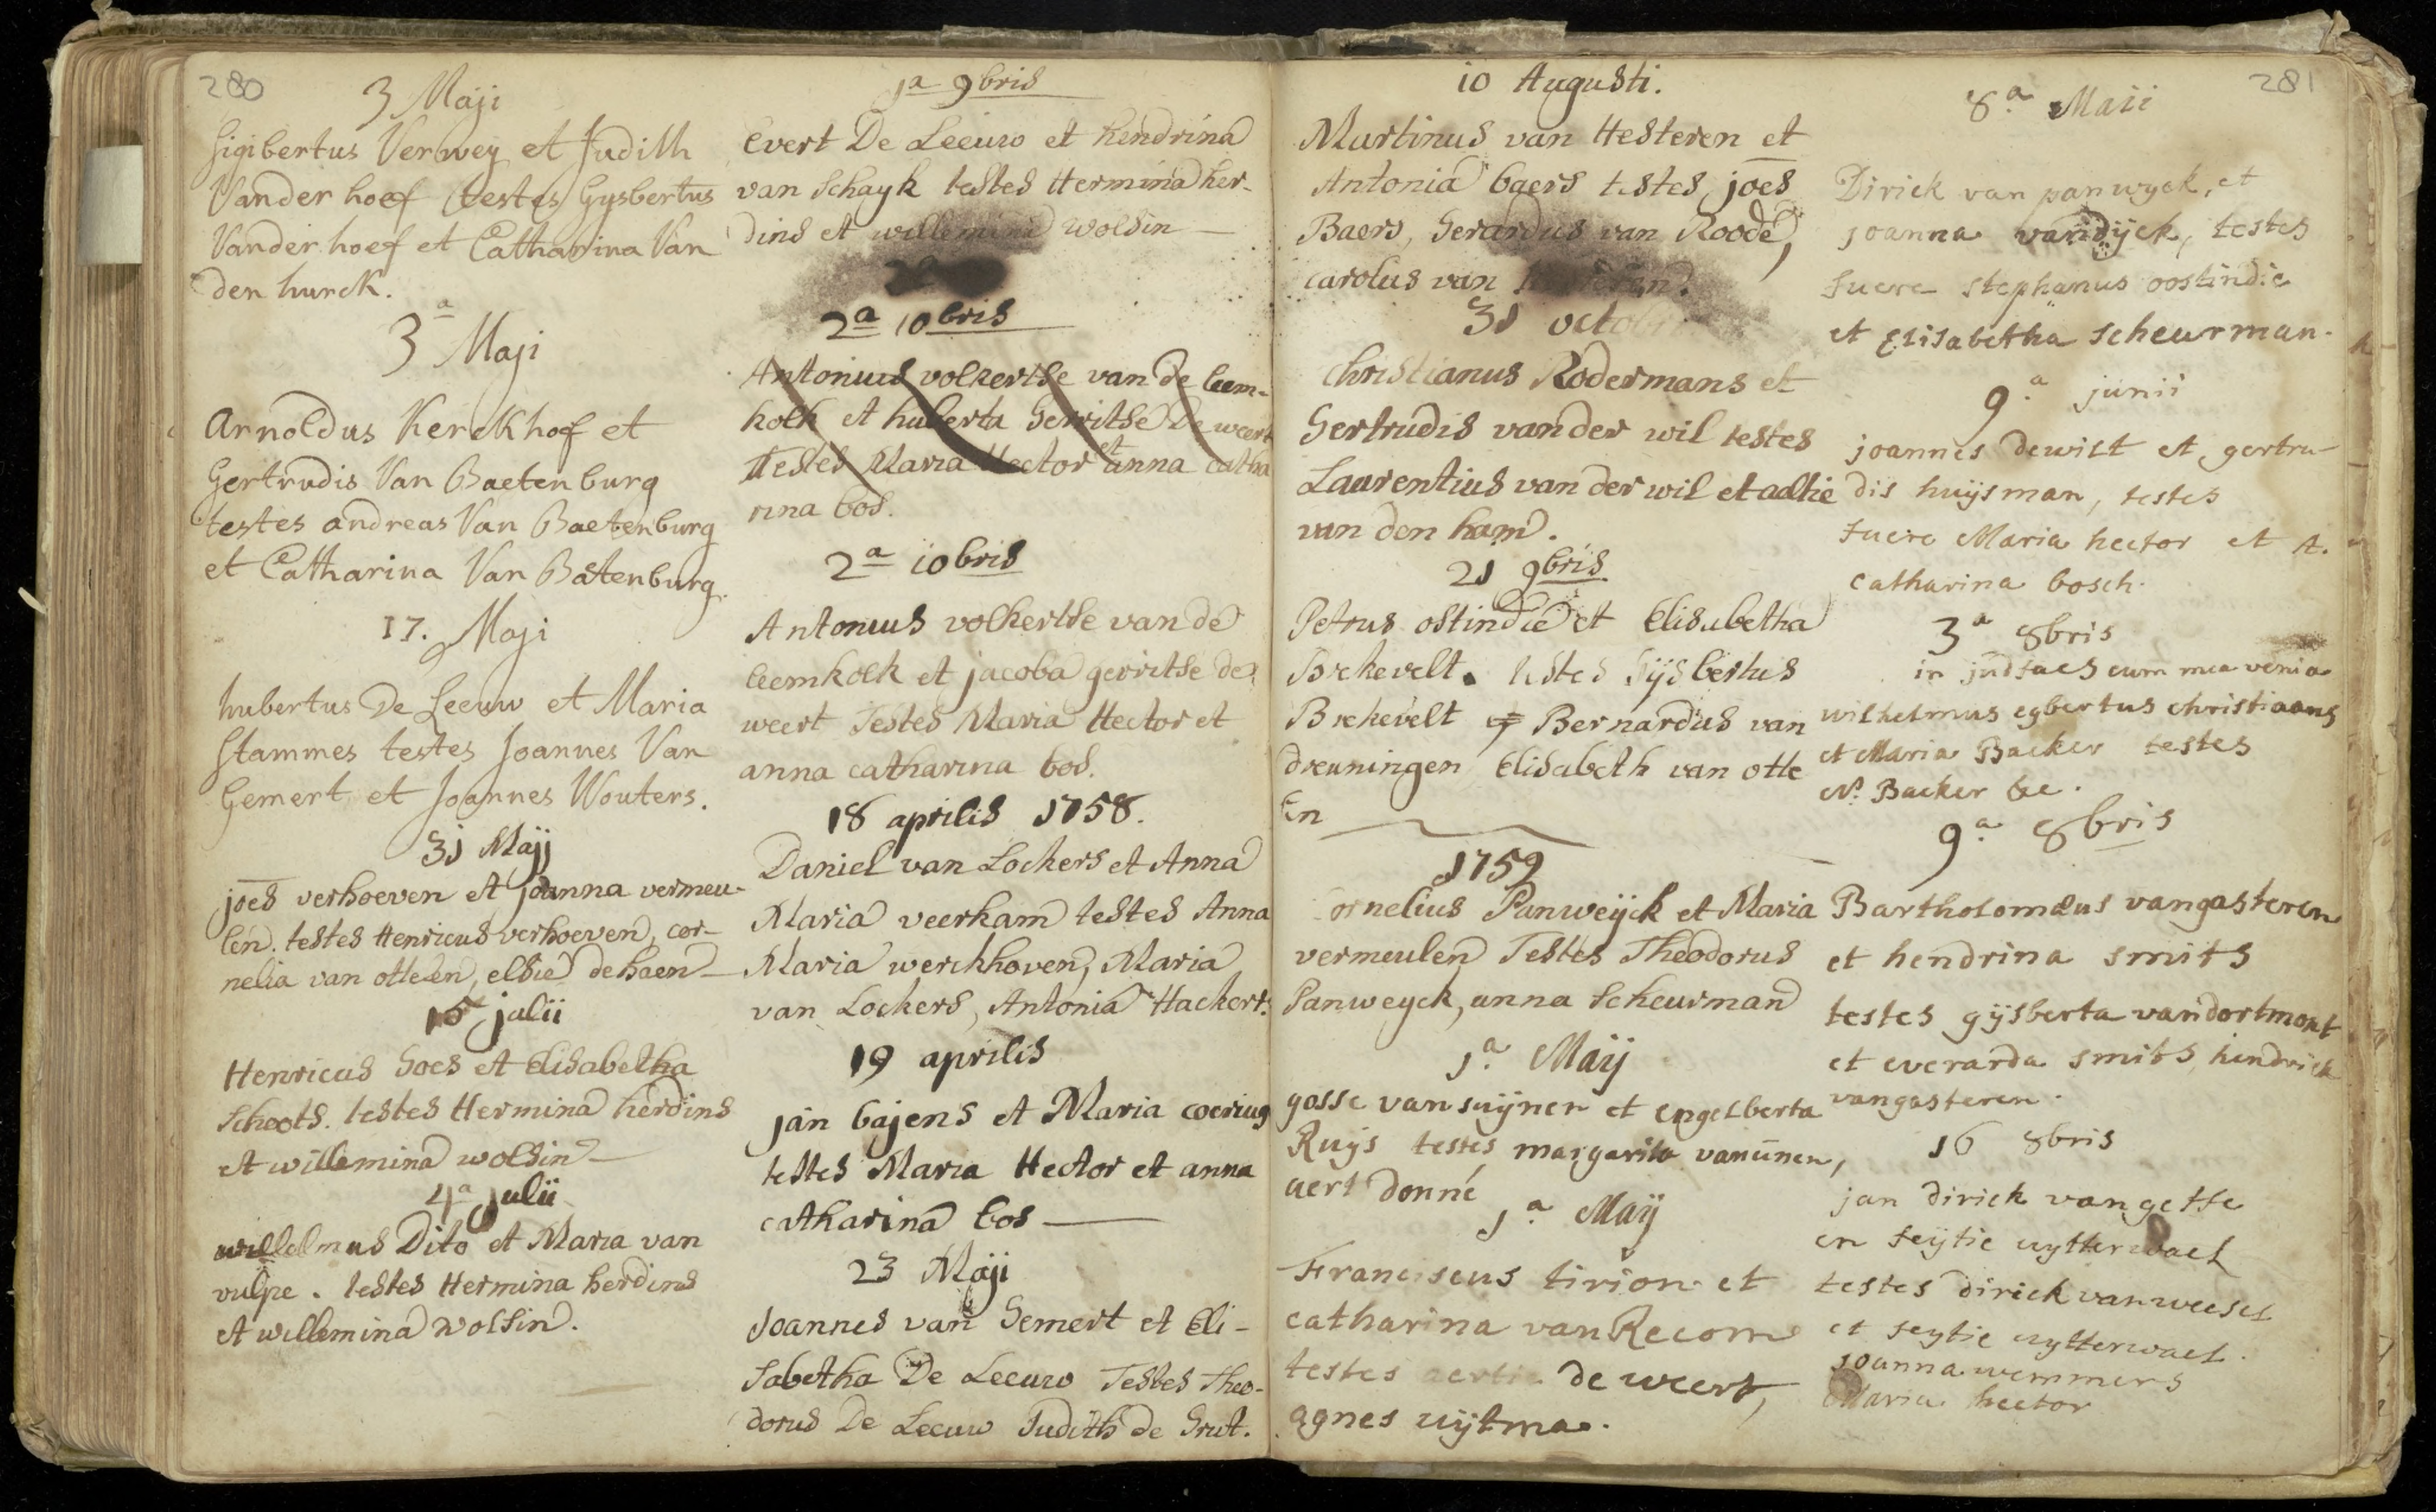 280
3 Maji
Sigibertus Verwey et Judith
Vander hoef (testes) Gysbertus
Vander hoef et Catharina Van
den hurck.
3a Maji
Arnoldus Kerckhof et
Gertrudis Van Baetenburg
testes andreas Van Baetenburg
et Catharina Van Batenburg.
17. Maji
hubertus De Leeuw et Maria
Stammes testes Joannes Van
Gemert et Joannes Wouters.
31 Maij
joes verhoeven et joanna vermeu-
len. testes Henricus verhoeven, cor-
nelia van otteren, elsie de haen
15 julii
Henricus Goes et Elisabetha
Schoots. testes Hermina herdins
et willemina wolsin
4a Julii
willelmus Dito et Maria van
vulpe. testes Hermina herdins
et willemina wolsin.
1a 9bris
Evert De Leeuw et hendrina
van Schayk testes Hermina her-
dins et willemina wolsin
2a 10bris
Antonius volkertse van de leem-
kolk et huberta Gerritse De weert
Testes Maria Hector et anna catha
rina bos.
2a 10bris
Antonius volkertse van de
leemkolk et jacoba gerritse de
weert Testes Maria Hector et
anna catharina bos.
18 aprilis 1758.
Daniel van Lockers et Anna
Maria veerkam testes Anna
Maria werckhoven, Maria
van Lockers, Antonia Hackert.
19 aprilis
jan bajens et Maria coerius
testes Maria Hector et anna
catharina bos
23 Maji
Joannes van Gemert et Eli-
sabetha De Leeuw Testes Theo-
dorus De Leeuw Judith de Grut.
10 Augusti.
Martinus van Hesteren et
Antonia baers testes joes
Baers, Gerardus van Roode,
carolus van
31 octob
Christianus Rodermans et
Gertrudis vander wil testes
Laurentius van der wil et aeltie
van den ham.
21 9bris
Petrus ostindie et Elisabetha
Brekevelt. testes Gijsbertus
Brekevelt Bernardus van
dreuningen Elisabeth van otte
en
1759
Cornelius Panweijck et Maria
vermeulen Testes Theodorus
Panweyck, anna Scheurman
1a Maij
gosse van suijnen et engelberta
Ruijs testes margarita vanunen,
aert donné
1a Maij
Franciscus tirion et
catharina van Recom
testes aertie de weert,
agnes uijtma.
281
8a Maii
Dirick van panwyck, et
joanna vandijck, testes
fuere stephanus oostindie
et Elisabetha scheurman.
9a junii
joannes dewilt et gertru-
dis huijsman, testes
fuere Maria hector et A.
catharina bosch.
3a 8bris
in jutfaes cum mea venia
wilhelmus egbertus christiaans
et Maria Backer testes
N. Backer &c.
9a 8bris
Bartholomæus vangasteren
et hendrina smits
testes gijsberta vandortmont
et everarda smits, hendrick
vangasteren.
16 8bris
jan dirick vangesse
en feijtie uytterwael
testes dirick vanweesel
et feytie uytterwael.
joanna wemmers
Maria hector